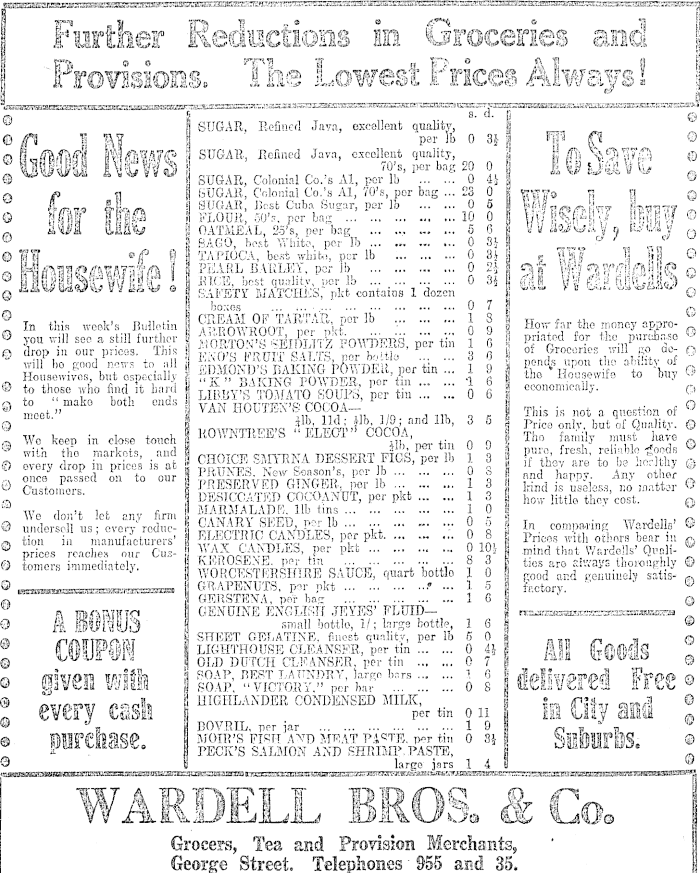 Further Reductions in Groceries and
Provisions. The Lowest Prices Always!
Good News
for the
Housewife!
In this week's Bulletin
you will see a still further
drop in our prices. This
will be good news to all
Housewives, but especially
to those who find it hard
to "make both ends
meet."
We keep in close touch
with the markets, and
every drop in prices is at
once passed on to our
Customers.
We don't let any firm
undersell us; every reduc-
tion in manufacturers'
prices reaches our Cus-
tomers immediately.
A BONUS
COUPON
given with
every cash
purchase.
s. d.
SUGAR, Refined Java, excellent quality,
per lb 0 3½
SUGAR, Refined Java, excellent quality,
70's, per bag 20 0
SUGAR, Colonial Co.'s A1, per lb ... ... 0 4½
SUGAR, Colonial Co.'s A1, 70's, per bag ... 23 0
SUGAR, Best Cuba Sugar, per lb ... ... 0 5
FLOUR, 50's, per bag ... ... ... ... ... 10 0
OATMEAL, 25's, per bag ... ... ... ... 5 6
SAGO, best White, per lb ... ... ... ... 0 3½
TAPIOCA, best white, per lb ... ... ... 0 3½
PEARL BARLEY, per lb ... ... ... ... 0 2½
RICE, best quality, per lb ... ... ... ... 0 3½
SAFETY MATCHES, pkt contains 1 dozen
boxes ... ... ... ... ... ... ... 0 7
CREAM OF TARTAR, per lb ... ... ... 1 8
ARROWROOT, per pkt. ... ... ... ... 0 9
MORTON'S SEIDLITZ POWDERS, per tin 1 6
ENO'S FRUIT SALTS, per bottle ... ... 3 6
EDMOND'S BAKING POWDER, per tin ... 1 9
"K" BAKING POWDER, per tin ... ... 1 6
LIBBY'S TOMATO SOUPS, per tin ... ... 0 6
VAN HOUTEN'S COCOA—
¼lb, 11d; ½lb, 1/9; and 1lb, 3 5
ROWNTREE'S "ELECT" COCOA,
¼lb, per tin 0 9
CHOICE SMYRNA DESSERT FIGS, per lb 1 3
PRUNES, New Season's, per lb ... ... ... 0 8
PRESERVED GINGER, per lb ... ... ... 1 3
DESICCATED COCOANUT, per pkt ... ... 1 3
MARMALADE, 1lb tins ... ... ... ... 1 0
CANARY SEED, per lb ... ... ... ... 0 5
ELECTRIC CANDLES, per pkt. ... ... ... 0 8
WAX CANDLES, per pkt ... ... ... ... 0 10½
KEROSENE, per tin ... ... ... ... ... 8 3
WORCESTERSHIRE SAUCE, quart bottle 1 0
GRAPENUTS, per pkt ... ... ... ... ... 1 5
GERSTENA, per bag ... ... ... ... ... 1 6
GENUINE ENGLISH JEYES' FLUID—
small bottle, 1/; large bottle, 1 6
SHEET GELATINE, finest quality, per lb 5 0
LIGHTHOUSE CLEANSER, per tin ... ... 0 4½
OLD DUTCH CLEANSER, per tin ... ... 0 7
SOAP, BEST LAUNDRY, large bars ... ... 1 6
SOAP, "VICTORY," per bar ... ... ... 0 8
HIGHLANDER CONDENSED MILK,
per tin 0 11
BOVRIL, per jar ... ... ... ... ... ... 1 9
MOIR'S FISH AND MEAT PASTE, per tin 0 3½
PECK'S SALMON AND SHRIMP PASTE,
large jars 1 4
To Save
Wisely, buy
at Wardells
How far the money appro-
priated for the purchase
of Groceries will go de-
pends upon the ability of
the Housewife to buy
economically.
This is not a question of
Price only, but of Quality.
The family must have
pure, fresh, reliable goods
if they are to be healthy
and happy. Any other
kind is useless, no matter
how little they cost.
In comparing Wardells'
Prices with others bear in
mind that Wardells' Quali-
ties are always thoroughly
good and genuinely satis-
factory.
All Goods
delivered Free
in City and
Suburbs.
WARDELL BROS. & Co.
Grocers, Tea and Provision Merchants,
George Street. Telephones 955 and 35.